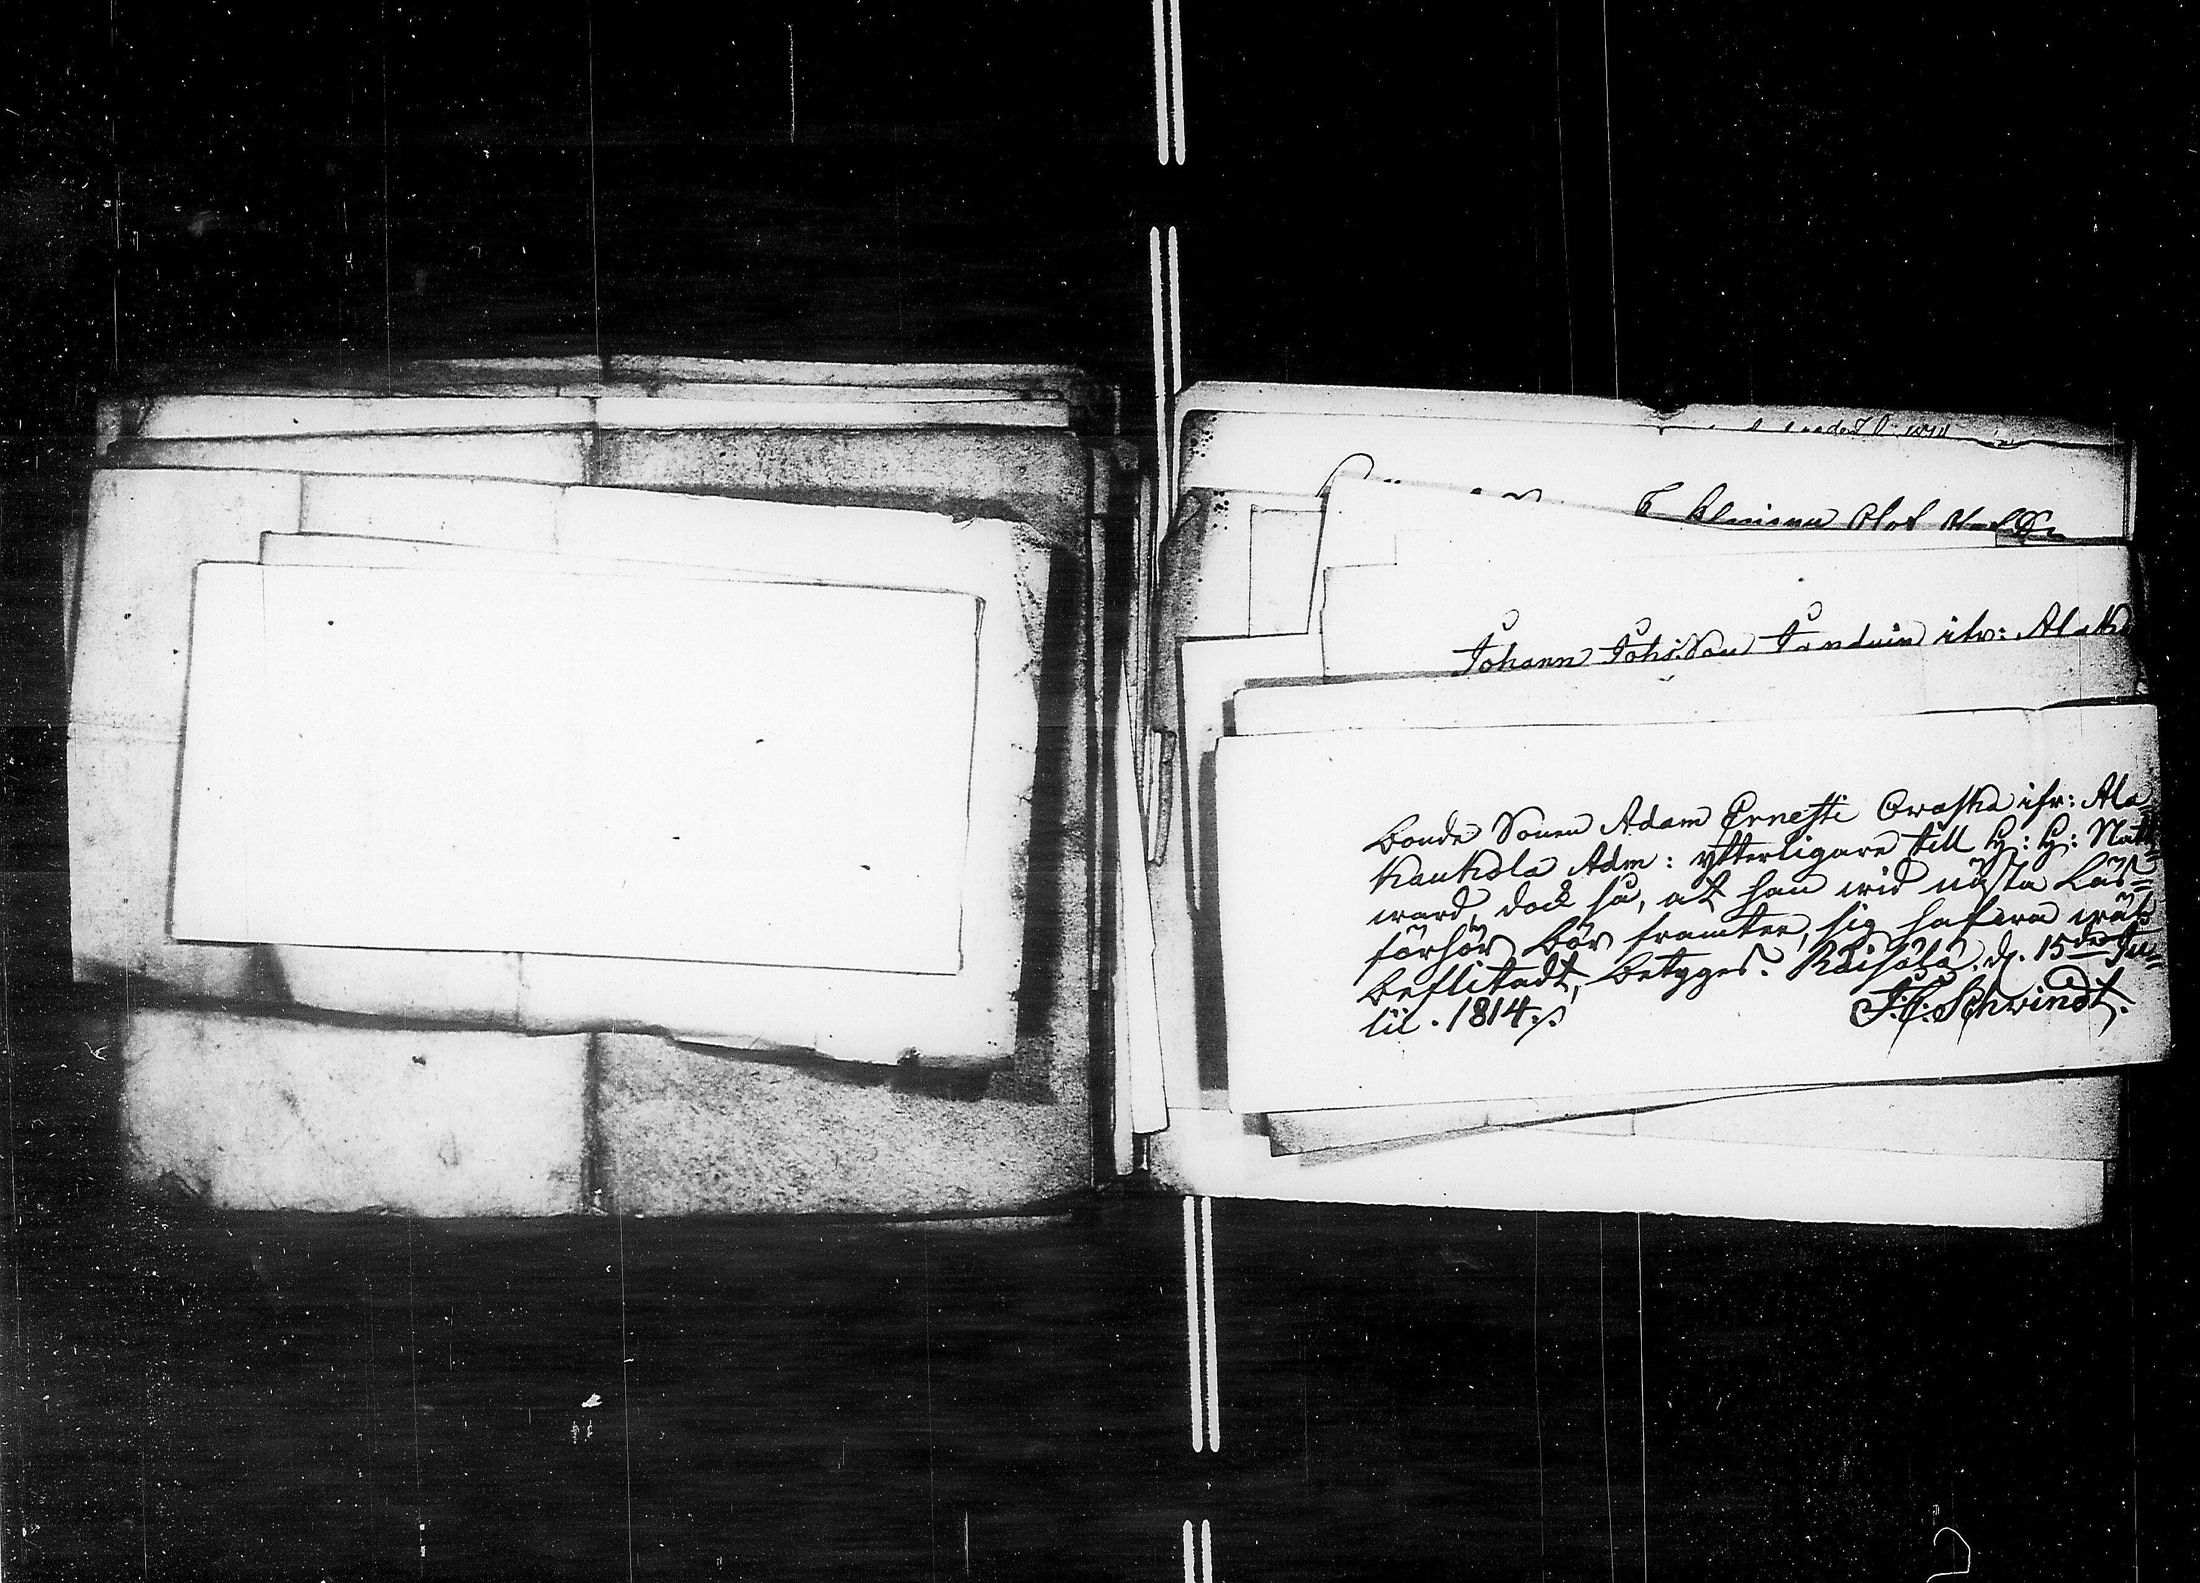 Johann Johs:Son ifr: Ala
Bonde Sonen Adam Ernesti Oraska ifr: Ala-
Kaukola Adm: ytterligare till H: H: Natt-
ward, dock så, at han wid nästa Läs-
förhör bör framtee, sig hafwa wäl
beflitadt, betyges. Räisälä, d. 15de Ju-
lii. 1814.
J: C. Schwindt.